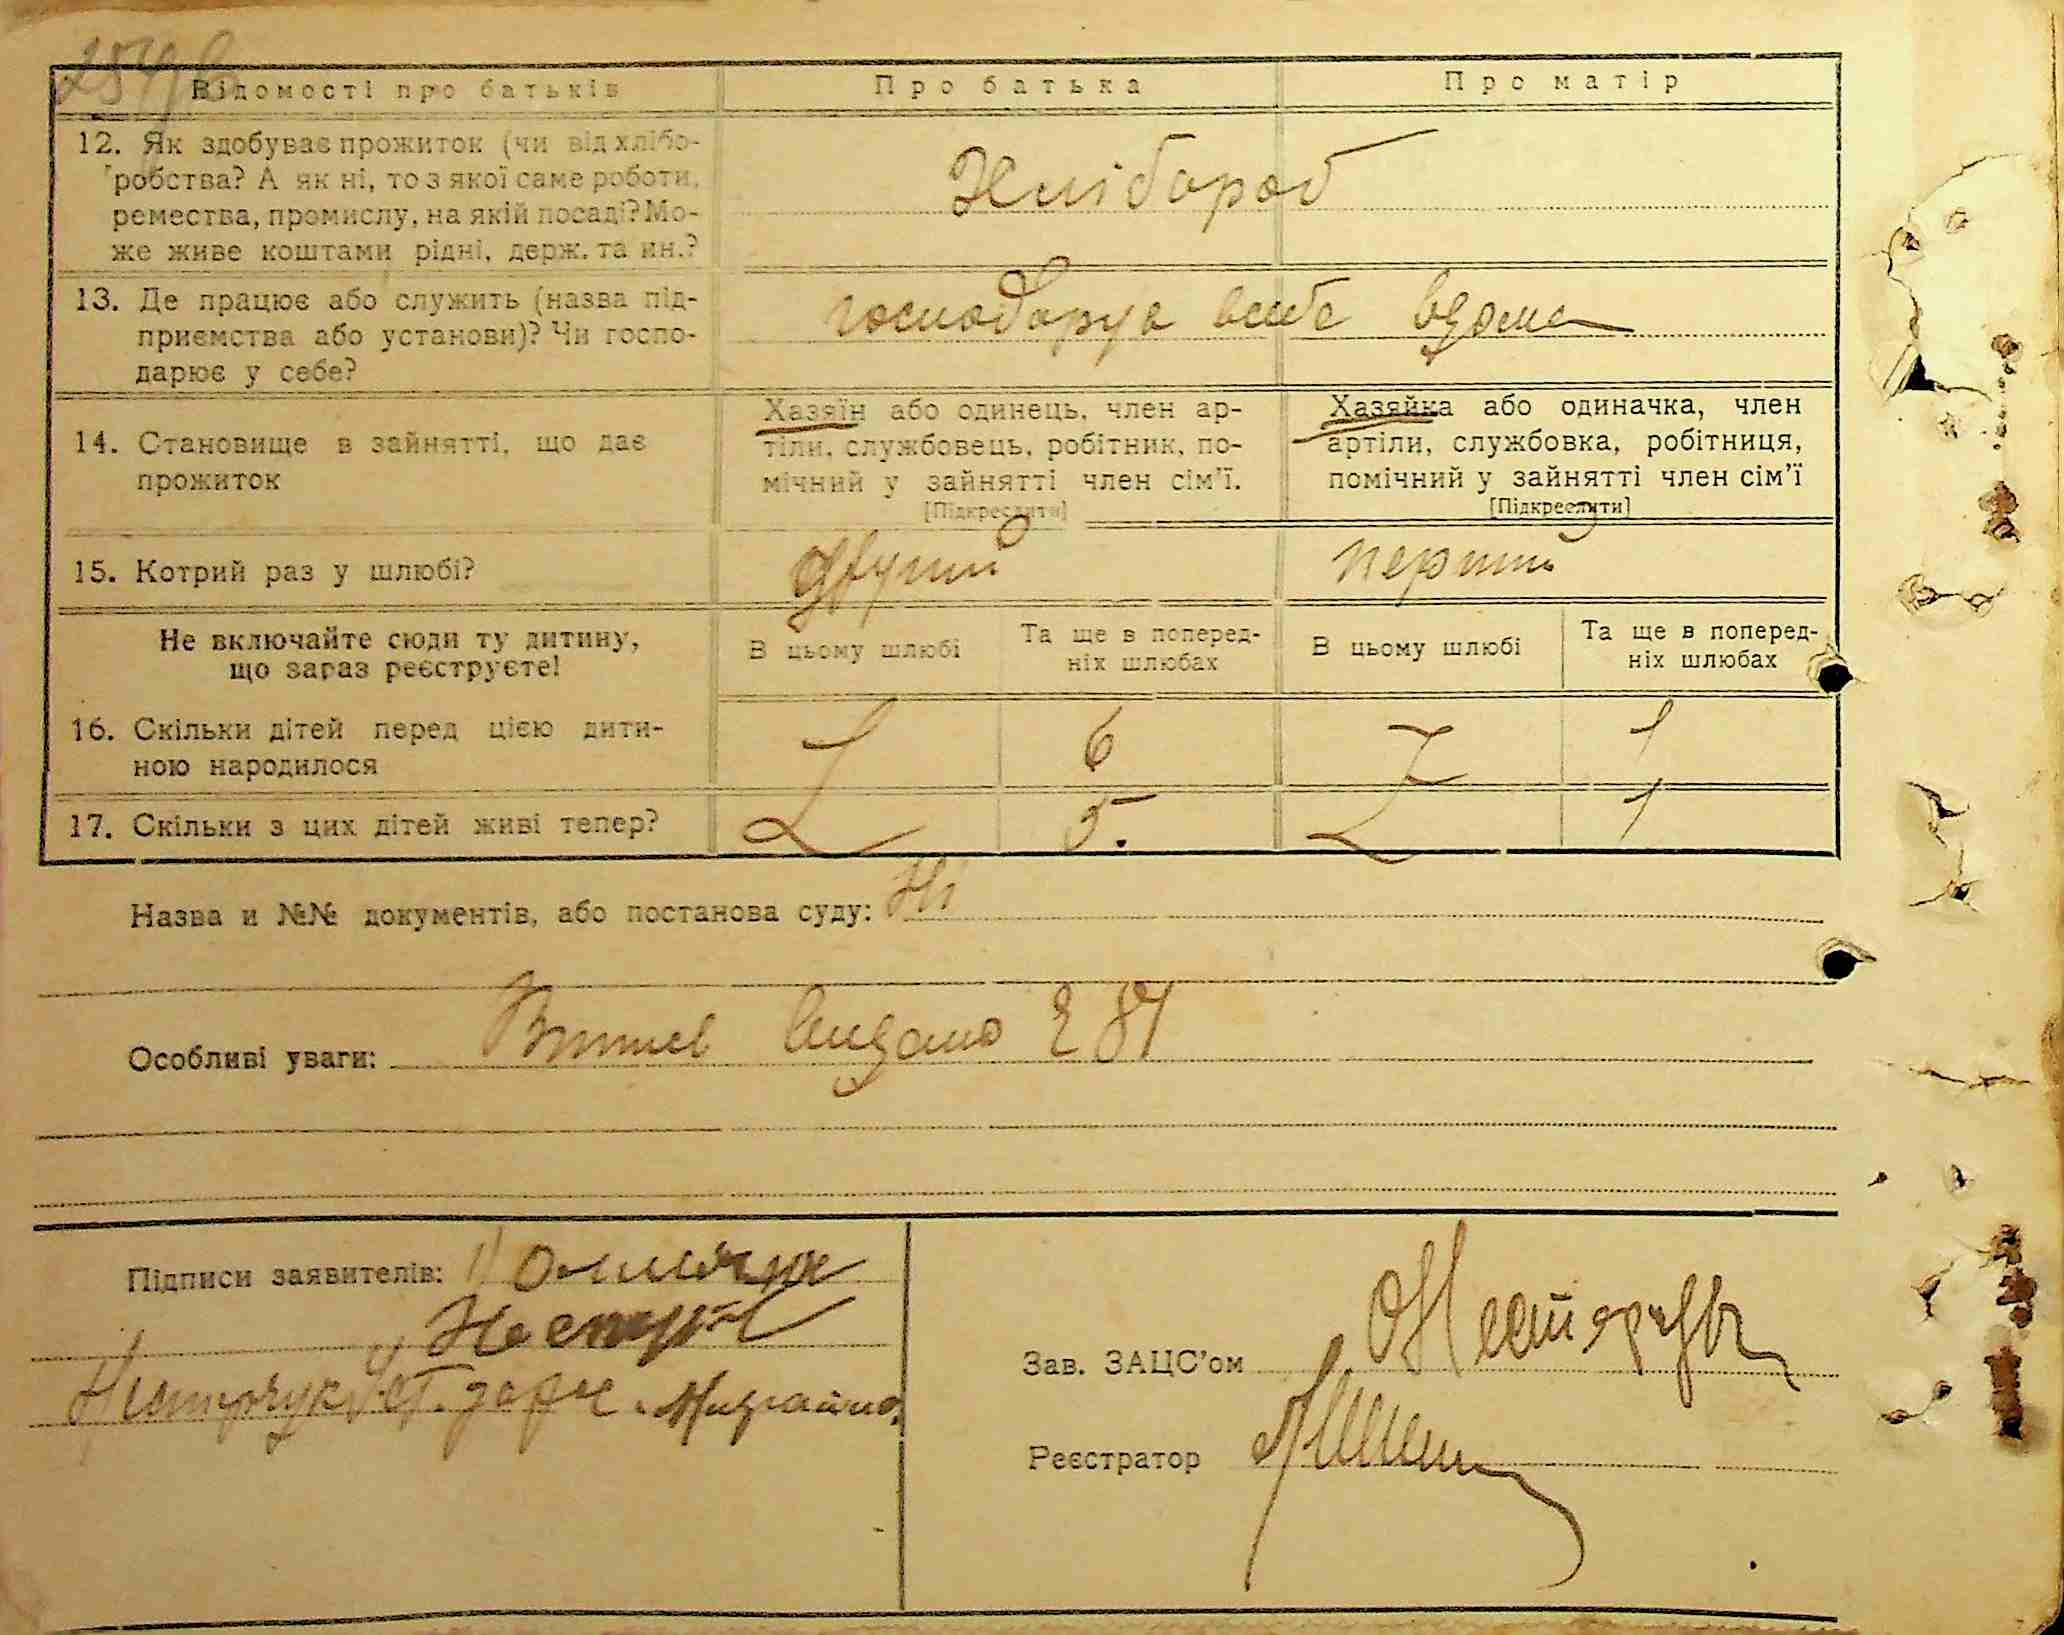 Відомості про батьків Про батька Про матір
12. Як здобуває прожиток (чи від хлібо-
робства? А як ні, то з якої саме роботи,
ремества, промислу, на якій посаді? Мо-
же живе коштами рідні, держ. та ин.?
Хлібороб
13. Де працює або служить (назва під-
приємства або установи)? Чи госпо-
дарює у себе?
господарує
14. Становище в зайнятті, що дає
прожиток
Хазяїн або одинець, член ар-
тіли, службовець, робітник, по-
мічний у зайнятті член сім'ї.
[Підкреслити]
Хазяйка або одиначка, член
артіли, службовка, робітниця,
помічний у зайнятті член сім'ї
[Підкреслити]
15. Котрий раз у шлюбі? другий перший
Не включайте сюди ту дитину,
що зараз реєструєте!
В цьому шлюбі
Та ще в поперед-
ніх шлюбах
В цьому шлюбі
Та ще в поперед-
ніх шлюбах
16. Скільки дітей перед цією дити-
ною народилося
6 1
17. Скільки з цих дітей живі тепер? 5. 1
Назва и №№ документів, або постанова суду: Ні
Особливі уваги: видано
Підписи заявителів:
Зав. ЗАЦС'ом
Реєстратор